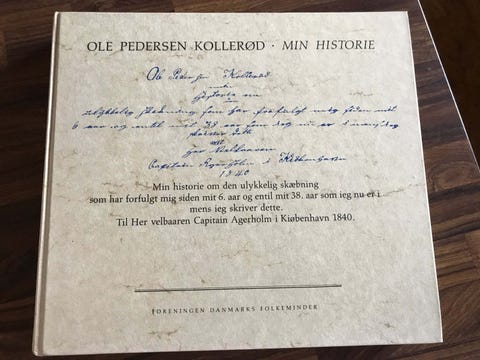 OLE PEDERSEN KOLLERØD · MIN HISTORIE
Ole Pedersen Kollerød
historie om
ulykkelig skæbning som har forfulgt mig siden mit
6 aar og entil mit 38. aar som ieg nu er i mens ieg
skriver dette
Her Velbaaren
Capitain Agerholm i Kiöbenhavn
1840
Min historie om den ulykkelig skæbning
som har forfulgt mig siden mit 6. aar og entil mit 38. aar som ieg nu er i
mens ieg skriver dette.
Til Her velbaaren Capitain Agerholm i Kiøbenhavn 1840.
FORENINGEN DANMARKS FOLKEMINDER